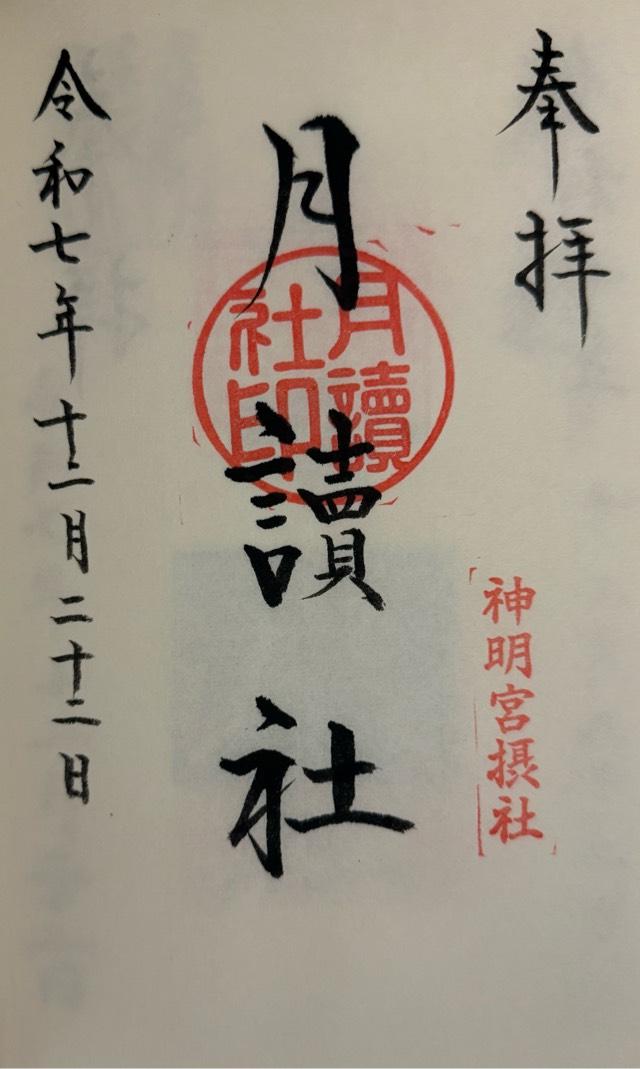 奉拝
神明宮摂社
月讀社
月讀
社印
令和七年十二月二十二日